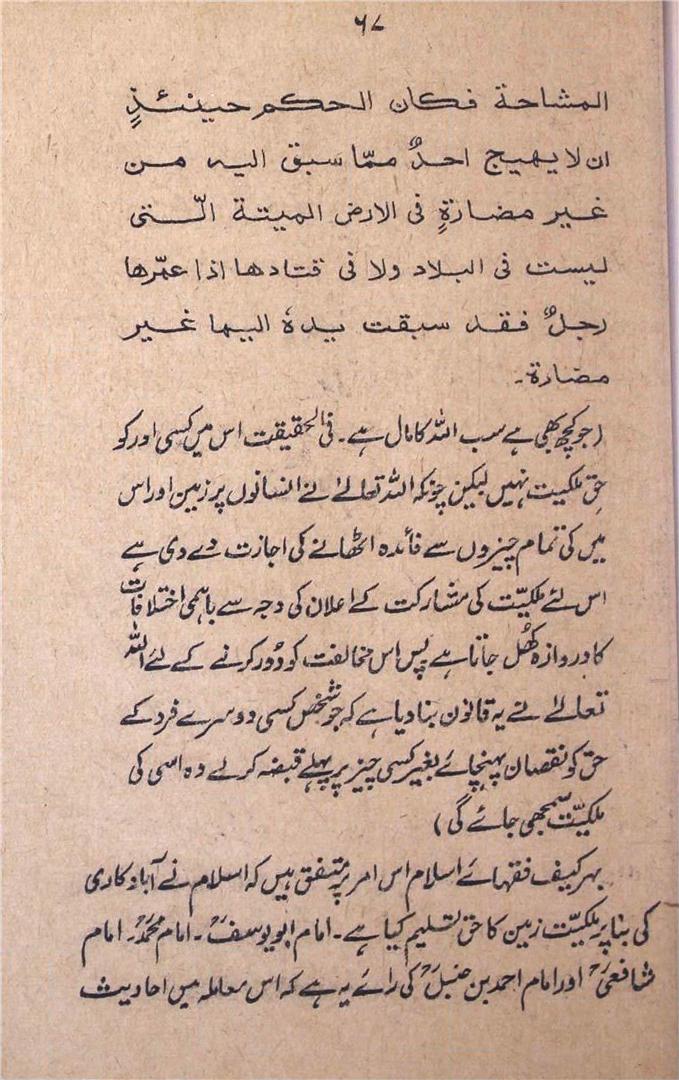 ۶۷
المشاحة فكان الحكم حينئذٍ
ان لا يهيج احدٌ ممّا سبق اليه من
غير مضارةٍ فى الارض الميتة الّتى
ليست فى البلاد ولا فى قتادها اذا عمّرها
رجلٌ فقد سبقت يدهٗ اليها غير
مضارة۔
(جو کچھ بھی ہے سب اللہ کا مال ہے۔ فی الحقیقت اس میں کسی اور کو
حقِ ملکیت نہیں لیکن چونکہ اللہ تعالےٰ نے انسانوں پر زمین اور اس
میں کی تمام چیزوں سے فائدہ اٹھانے کی اجازت دے دی ہے
اس لئے ملکیّت کی مشارکت کے اعلان کی وجہ سے باہمی اختلافات
کا دروازہ کھُل جاتا ہے پس اس مخالفت کو دُور کرنے کے لئے اللہ
تعالےٰ نے یہ قانون بنا دیا ہے کہ جو شخص کسی دوسرے فرد کے
حق کو نقصان پہنچائے بغیر کسی چیز پر پہلے قبضہ کرلے وہ اسی کی
ملکیّت سمجھی جائے گی)
بہر کیف فقہائے اسلام اس امر پر متفق ہیں کہ اسلام نے آباد کاری
کی بنا پر ملکیّت زمین کا حق تسلیم کیا ہے۔ امام ابو یوسفؒ۔ امام محمدؒ۔ امام
شافعیؒ اور امام احمد بن حنبلؒ کی رائے یہ ہے کہ اس معاملہ میں احادیث